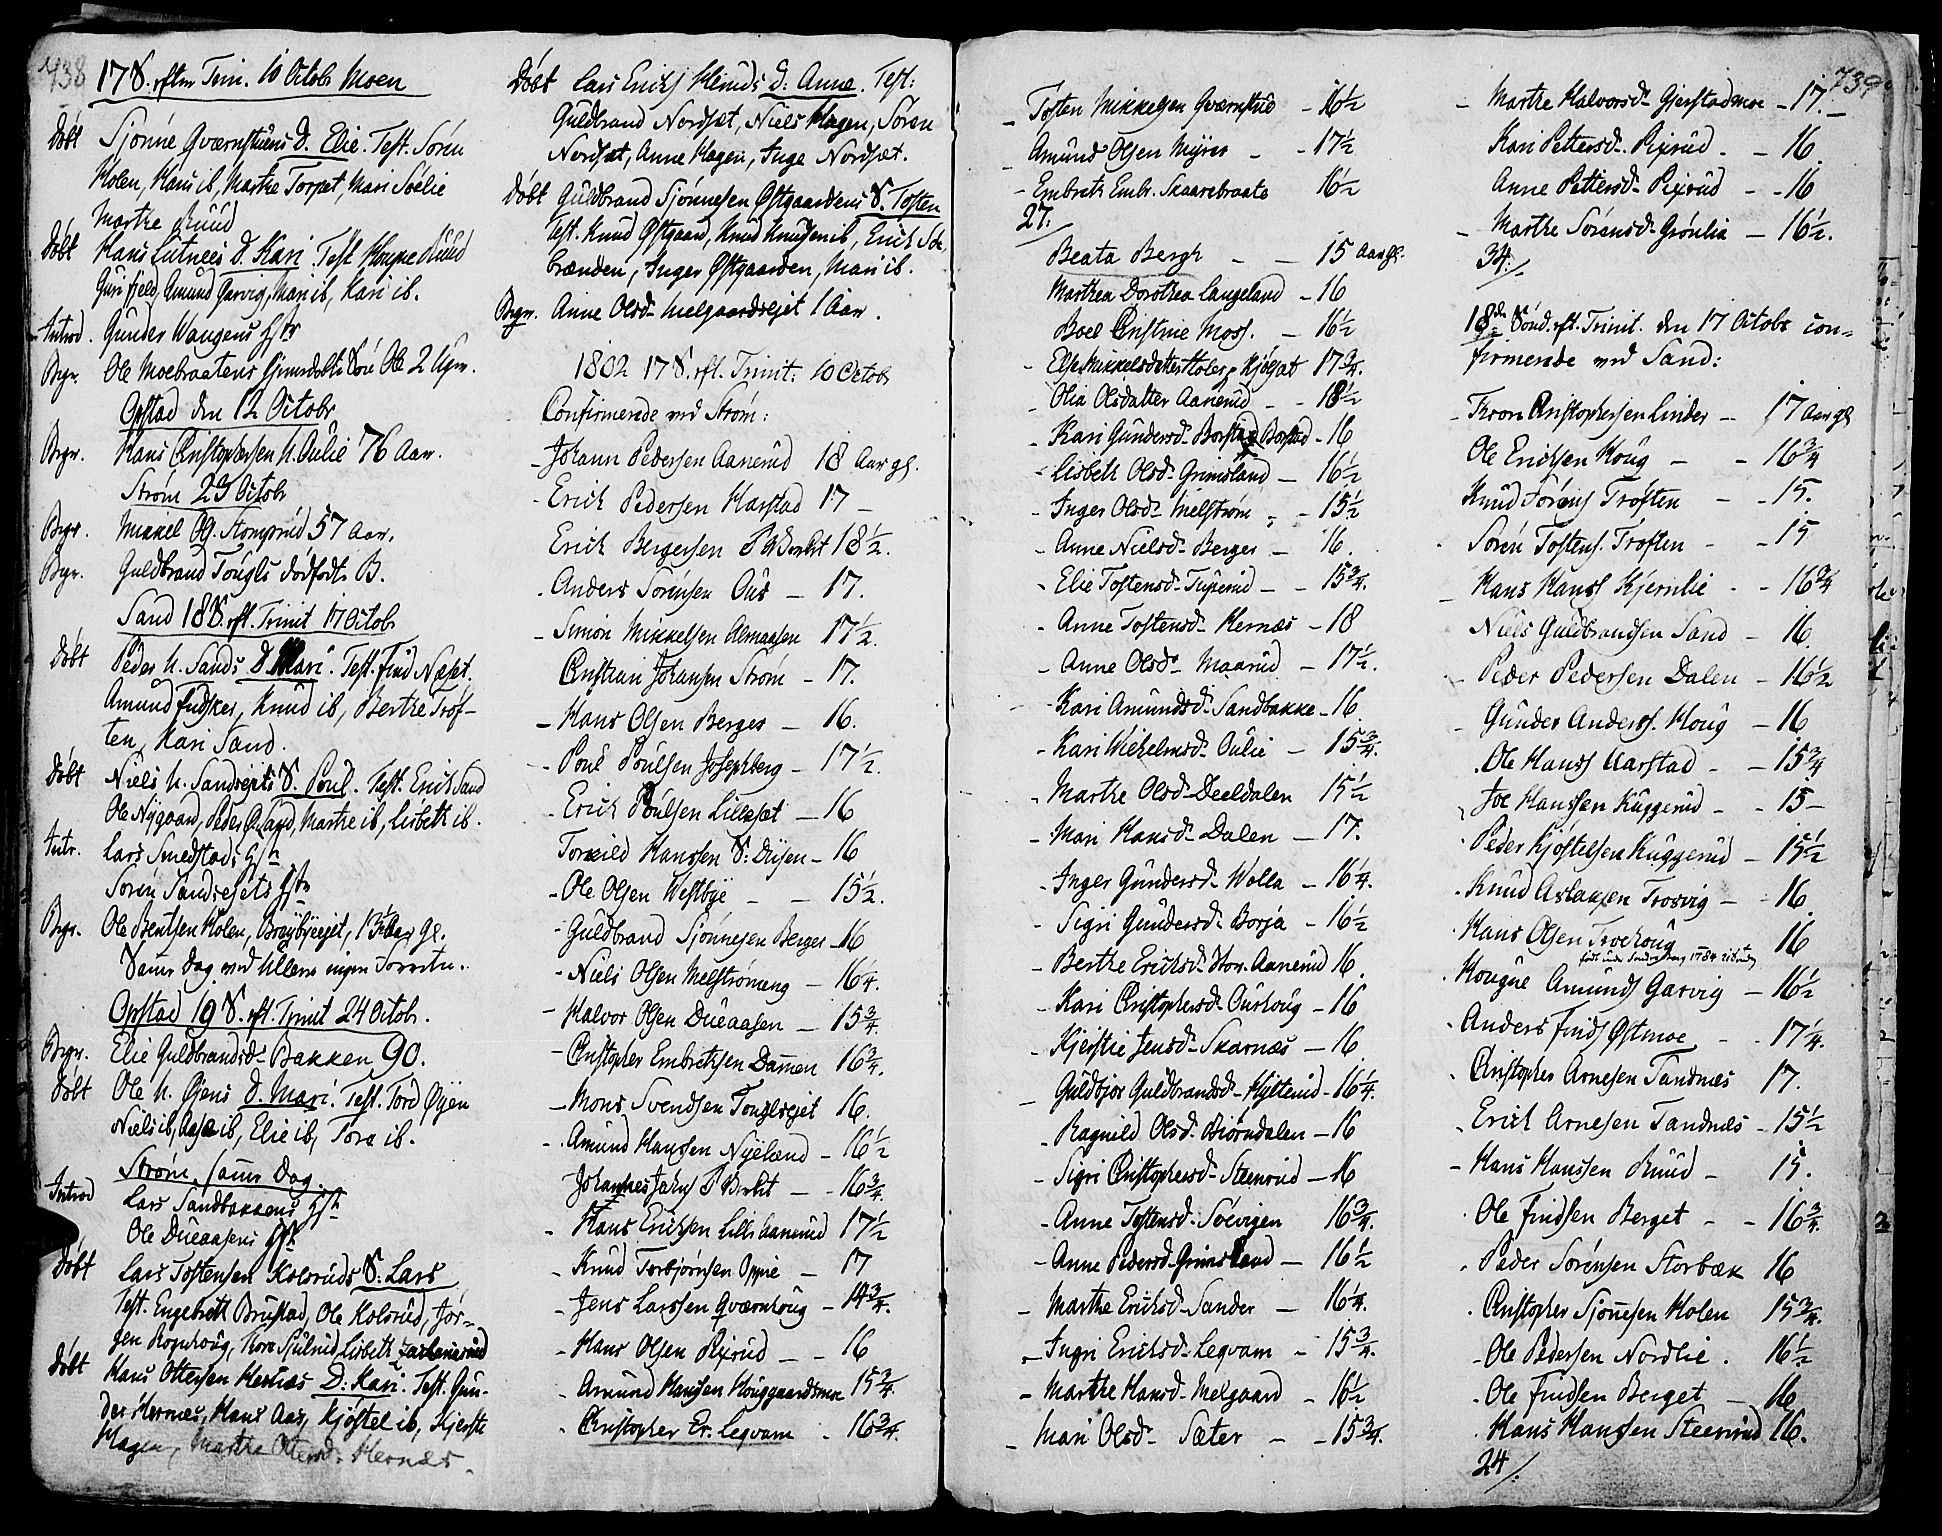 738
17 S. efter Trin. 10 Octobr Moen
Døbt Sjønne Gværnstuens D. Elie. Test. Søren
Holen, Hans ib, Marthe Torpet, Mari Sælie
Marthe Ruud
Døbt Hans Lutnees D. Kari. Test. Ruud
Guri fjeld, Amund Garvig, Mari ib, Kari ib.
Introd. Gunder Wangens Hstr
Begr. Ole Moebraatens Søn Ole 2 Uger.
Opstad den 12 Octobr
Begr. Hans Christophersen N. Oulie 76 Aar.
Strøm 23 Octobr
Begr. Mikkel Og. Stomperud 57 Aar.
Begr. Guldbrand Tougls dødfødte B.
Sand 18 S. eft. Trinit 17 Octobr
Døbt Peder N. Sands D. Mari. Test. Find Næset.
Amund Findskær, Knud ib, Berthe Trøf-
ten, Kari Sand.
Døbt Niels N. Sandsejets S. Poul. Test. Erich Sand
Ole Nygaard, Peder Ø. Sand, Marthe ib, Lisbeth ib.
Intr. Lars Smedstads Hstr
Søren Sandsejets Hstr
Begr. Ole Bentsen Holen, 13 Aar gl.
Samme Dag ved Ullern ingen Forretn.
Opstad 19 S. eft. Trinit 24 Octobr.
Begr. Elie Guldbrandsd. Bakken 90.
Døbt Ole N. Øjens D. Mari. Test. Tord Øyen
Niels ib, Aase ib, Elie ib, Tora ib.
Strøm samme Dag.
Introd Lars Sandbakkens Hstr
Ole Dueaasens Hstr
Døbt Lars Tostensen Kolsruds S. Lars
Test. Engebreth Brustad, Ole Kolsrud, Jør-
gen Rognhoug, Kore Sjulrud, Lisbeth Zachariasrud
Døbt Hans Ottersen Hernæs D: Kari. Test. Gun-
der Hernæs, Hans Aas, Kjøstel ib, Kjerste
Hagen, Marthe Ottersd. Hernæs.
Døbt Lars Erichs Hvinds D. Anne. Test:
Guldbrand Nordset, Niels Hagen, Søren
Nordset, Anne Hagen, Inge Nordset.
Døbt Guldbrand Sjønnesen Østgaardens S. Tosten
Test. Knud Østgaard, Knud Knudsen ib, Erich Sch
brænden, Inger Østgaarden, Mari ib.
Begr. Anne Olsd. Melgaardsejet 1 Aar.
1802 17 S. eft. Trinit: 10 Octobr
Confirmerede ved Strøm:
Johann Pedersen Aanerud 18 Aar gl.
- Erich Pedersen Harstad 17 -
Erich Bergersen 18 1/2.
- Anders Sørensen Ous - 17.
- Simon Mikkelsen Almaasen 17 1/2.
Christian Johansen Strøm - 17.
- Hans Olsen Berger - 16.
- Poul Poulsen Josephberg - 17 1/2.
- Erich Poulsen Lillesæt - 16
Torkild Hanssen S: Disen - 16
- Ole Olsen Westbye - - 15 1/2.
- Guldbrand Sjønnesen Berger - 16
- Niels Olsen Melstrømeng - 16 1/4.
- Halvor Olsen Dueaasen - 15 3/4.
- Christopher Embretsen Dammen 16 3/4.
- Mons Svendsen Touglsejet 16.
- Amund Hanssen Nyelænd - 16 1/2
- Johannes Johns - 16 3/4.
- Hans Erichsen Lille Aanerud 17 1/2
- Knud Torbjørnsen Oppie - 17
- Jens Larssen Qværnhoug - 14 3/4.
- Hans Olsen Rixrud - - 16
- Amund Hanssen Houggaardsmoe 15 3/4.
- Christopher Er. Leqvam - 16 3/4.
739
- Tosten Mikkelsen Qværnstue - 16 1/2
- Amund Olsen Myrer - - 17 1/2
- Embreth Embr. Skaarebraate 16 1/2
27:
Beata Bergh - - 15 Aar gl.
Marthea Dorothea Langeland - 16
Boel Christine Moss. - 16 1/2
- Else Mikkelsdatter Holer, Kjøljat 17 3/4.
- Olia Olsdatter Aanerud - - 18 1/2
- Kari Gundersd. Borstad - 16
- Lisbeth Olsd. Grimsland - 16 1/2
- Inger Olsd. Melstrøm - - 15 1/2
- Anne Nielsd. Berger - 16.
- Elie Tostensd. Tugerud - - 15 3/4.
- Anne Tostensd. Hernæs - 18
- Anne Olsd. Maarud - 17 1/2.
- Kari Amundsd. Sandbakke - 16.
- Kari Wilhelmsd. Oulie - 15 3/4.
- Marthe Olsd. Deeldalen 15 1/2
- Mari Hansd. Dalen - 17.
- Inger Gundersd. Wolla - 16 1/4.
- Sigri Gundersd. Borja - 16 1/2
- Berthe Erichsd. Stor. Aanerud 16.
- Kari Christophersd. Ourhoug - 16
- Kjerstie Jensd. Skarnæs - 16.
- Guldbjor Guldbrandsd. Hytterud - 16 1/4.
- Ragnild Olsd. Biørndalen - 16
- Sigri Christophersd. Steenrud - 16
- Anne Tostensd. Sørvigen 16 3/4.
- Anne Pedersd. Grimsland - 16 1/2
- Marthe Erichsd. Sander - 16 1/4.
- Ingri Erichsd. Leqvam - 15 3/4.
- Marthe Hansd. Melgaard - 16 1/2
- Mari Olsd. Sæter - - 15 3/4.
- Marthe Halvorsd. Gjerstadmoe - 17. -
Kari Pettersd. Rixrud - - 16.
Anne Pettersd. Rixrud - - 16
- Marthe Sørensd. Grønlia - 16 1/2.
34./.
18de Sønd. eft. Trinit. den 17 Octobr con-
firmerede ved Sand:
- Thron Christophersen Linder - 17 Aar gl
Ole Erichsen Houg - - 16 3/4
Knud Sørens Trøften - - 15.
- Søren Tostens. Trøften - - 15
- Hans Hanss Kjernlie - - 16 3/4
Niels Guldbrandsen Sand - 16.
- Peder Pedersen Dalen - 16 1/2
- Gunder Anderss. Houg - 16
- Ole Hanss Aarstad - - 15 3/4
- Joe Hanssen Kuggerud - - 15 -
- Peder Kjøstelsen Kuggerud - 15 1/2
- Knud Aslaksen Trosvig - 16.
- Hans Olsen Troehoug 16
født 1784
- Haagne Amunds Garvig - 16 1/2
- Anders Finds Østmoe - - 17 1/4.
- Christopher Arnesen Sandnæs 17.
- Erich Arnesen Sandnæs - 15 1/2
- Hans Hanssen Ruud - 15.
- Ole Findsen Berget - - 16 3/4.
- Peder Sørensen Storbæk 16
- Christopher Sjønnesen Holen 15 3/4.
- Ole Pedersen Nordlie . 16 1/2
- Ole Findsen Berget - 16
- Hans Hanssen Steenrud 16.
24./.